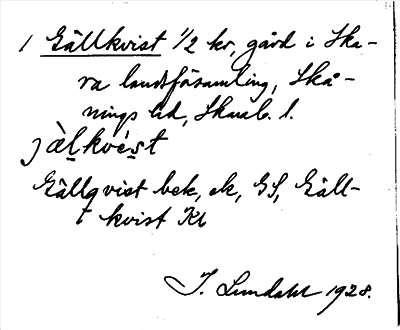 1 Gällkvist 1/2 kr, gård i Ska-
ra landsförsamling, Skå-
nings hd, Skarab. l.
jä̀l̲kvés̲t
Gällqvist bek, ek, GS, Gäll-
t kvist Kb
J. Lundahl 1928.